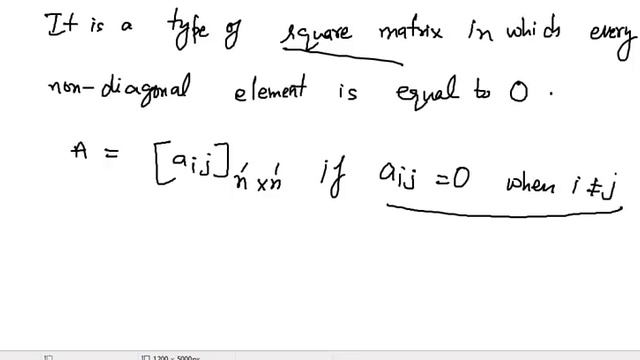 It is a type of square matrix in which every
non-diagonal element is equal to 0.
A = [aij]n×n if aij = 0 when i ≠ j
1200 × 5000px